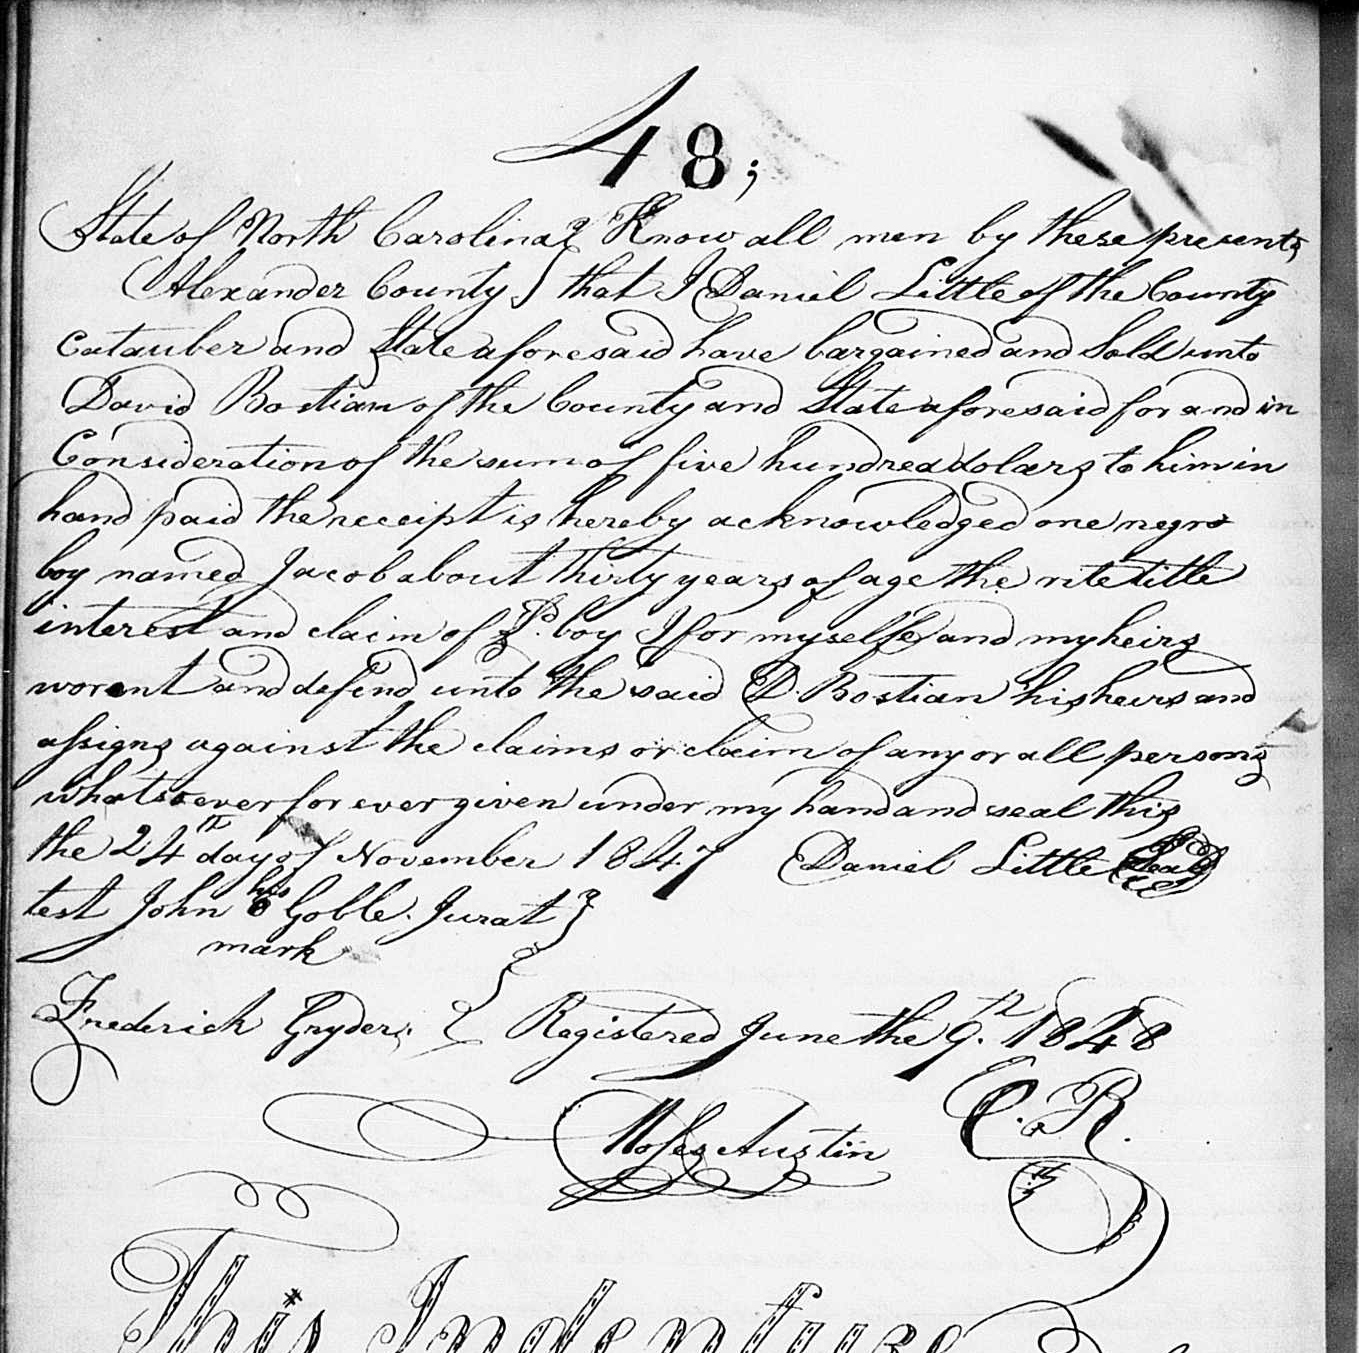 48;
State of North Carolina } Know all men by these presents
Alexander County } that I Daniel Little of the County
Catauber and State aforesaid have bargained and Sold unto
David Bostian of the County and State aforesaid for and in
Consideration of the sum of five hundred dolars to him in
hand paid the receipt is hereby acknowledged one negro
boy named Jacob about thirty years of age the rite title
interest and claim of Sd. boy I for myselfe and my heirs
worent and defend unto the said D. Bostian his heirs and
assigns against the claims or claim of any or all persons
whatsoever for ever given under my hand and seal this
the 24th day of November 1847 Daniel Little Seal
test John his Goble. Jurat }
mark
Frederick Gryder. } Registered June the 9th. 1848
Moses Austin C. R.
This Indenture